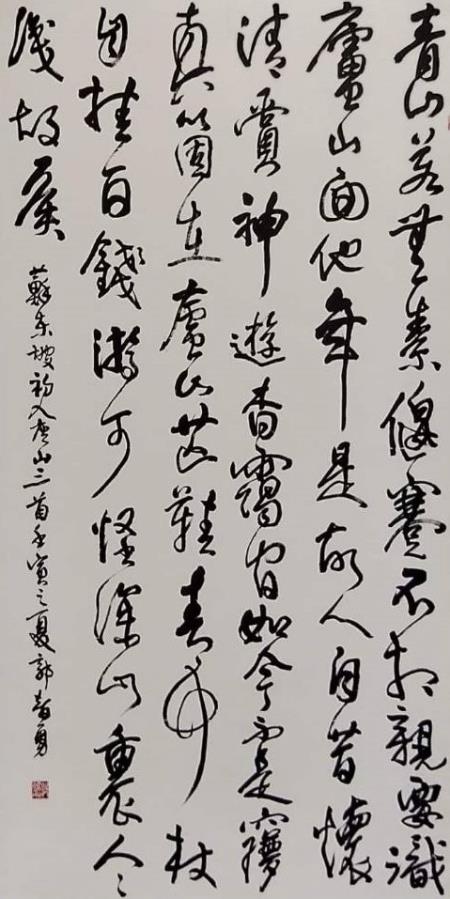 青山若無素偃蹇不相親要識
廬山面他年是故人自昔懷
清賞神遊杳靄間如今不是夢
真箇在廬山芒鞋青竹杖
自挂百錢游可怪深山裏人〻
識故侯
蘇東坡初入庐山三首壬寅之夏郭勇